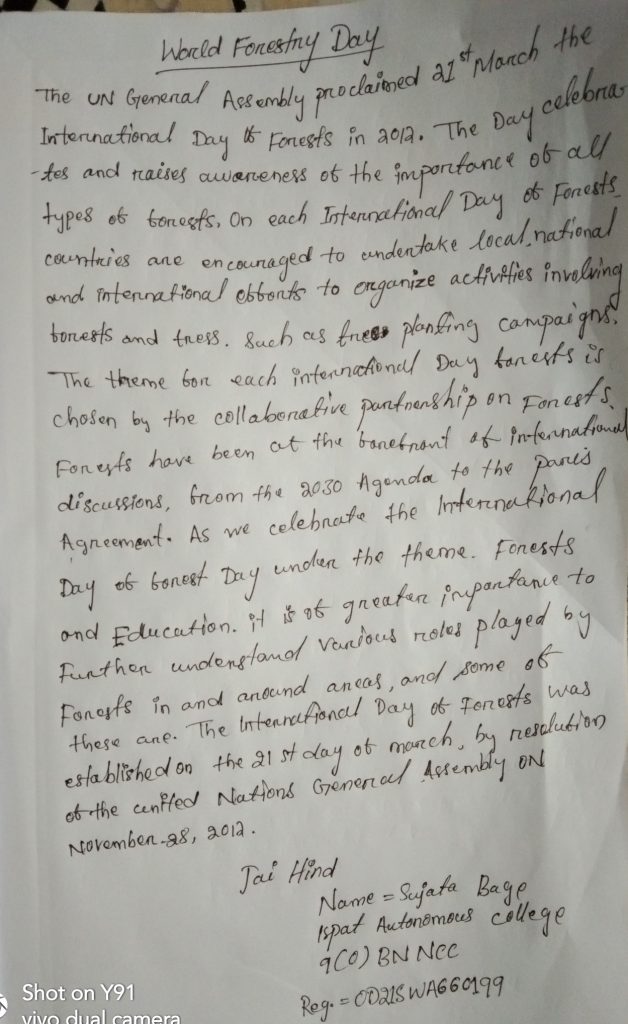 World Forestry Day
The UN General Assembly proclaimed 21st March the
International Day of Forests in 2012. The Day celebra
-tes and raises awareness of the importance of all
types of forests, On each International Day of Forests
countries are encouraged to undertake local, national
and international efforts to organize activities involving
forests and tress. Such as trees planting campaigns.
The theme for each international Day forests is
chosen by the collaborative partnership on Forests.
Forests have been at the forefront of international
discussions, from the 2030 Agenda to the paris
Agreement. As we celebrate the International
Day of forest Day under the theme. Forests
and Education. it is of greater importance to
Further understand various roles played by
Forests in and around areas, and some of
these are. The International Day of Forests was
established on the 21 st day of march, by resolution
of the united Nations General Assembly ON
November-28, 2012.
Jai Hind
Name = Sujata Bage
Ispat Autonomous college
9(O) BN NCC
Reg. = OD21SWA660199
Shot on Y91
vivo dual camera